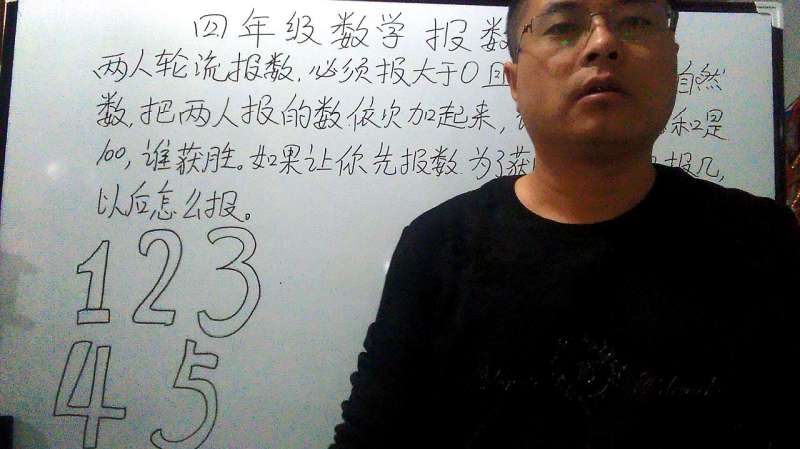 四年级数学 报数
两人轮流报数,必须报大于0且 自然
数,把两人报的数依次加起来, 和是
100,谁获胜。如果让你先报数为了获 报几,
以后怎么报。
1 2 3
4 5